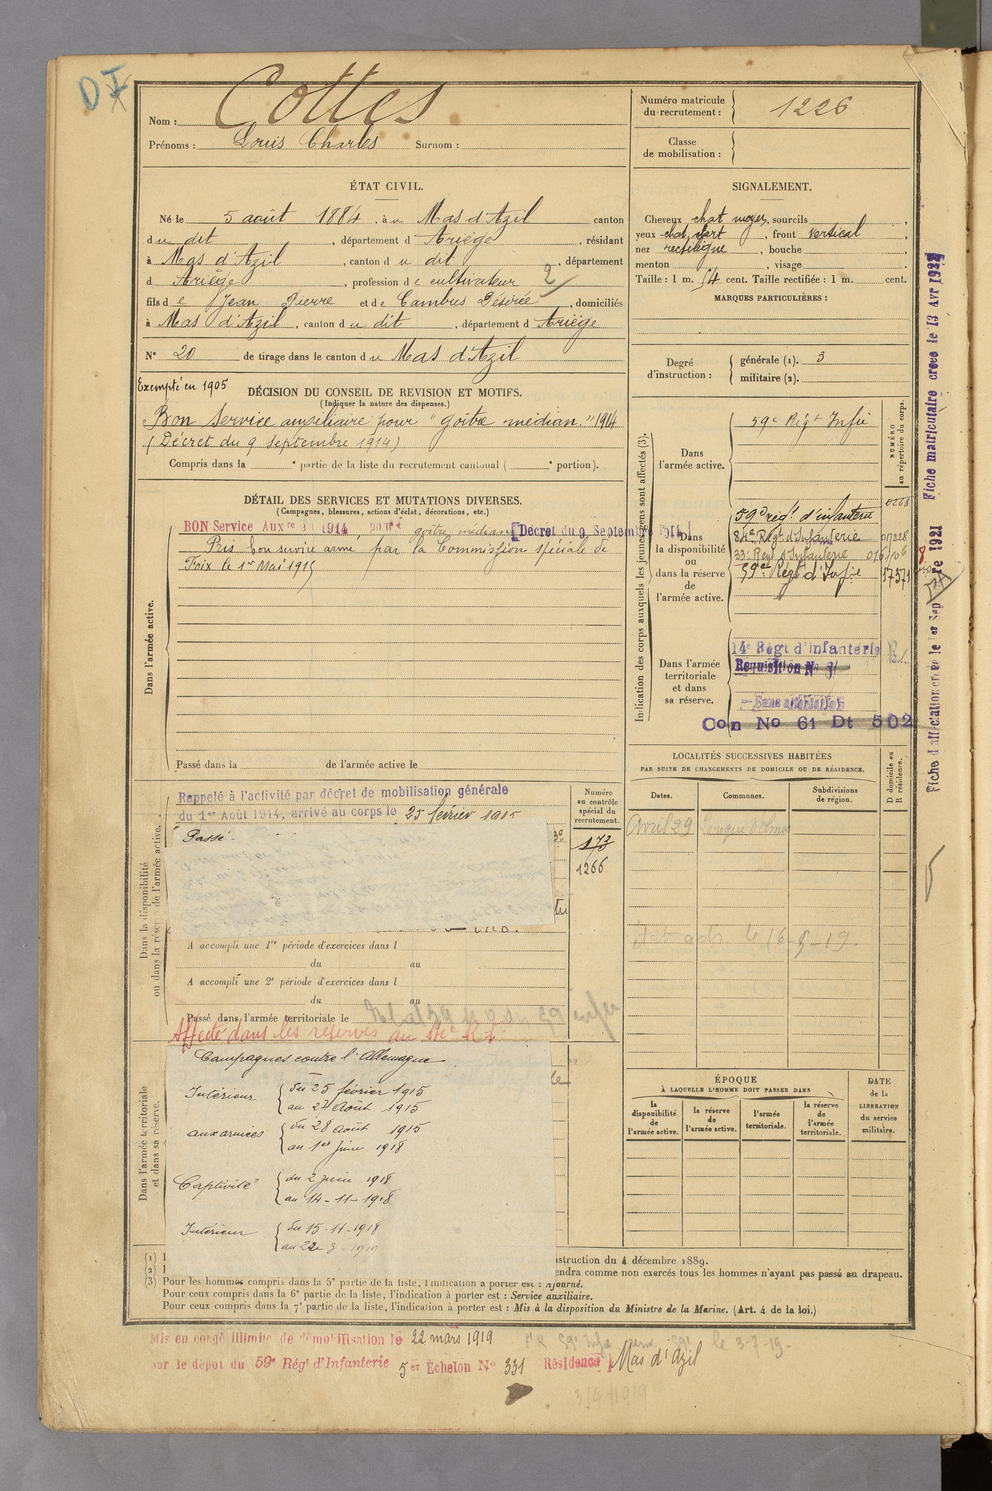 D
Nom : Cottes
Prénoms : Louis Charles Surnom :
Numéro matricule du recrutement : 1226
Classe de mobilisation :
ÉTAT CIVIL.
Né le 5 août 1884, à u Mas d'Azil canton
du dit, département d Ariège, résidant
à Mas d'Azil, canton du dit, département
d Ariège, profession de cultivateur 2
fils de Jean Pierre et de Cambus Désirée, domiciliés
à Mas d'Azil, canton du dit, département d Ariège
N° 20 de tirage dans le canton du Mas d'Azil
SIGNALEMENT.
Cheveux chat moyen, sourcils
yeux chat vert, front vertical,
nez rectiligne, bouche
menton, visage
Taille : 1 m. 54 cent. Taille rectifiée : 1 m. cent.
MARQUES PARTICULIÈRES :
Degré d'instruction : générale (1). 3
militaire (2).
Exempté en 1905
DÉCISION DU CONSEIL DE REVISION ET MOTIFS.
(Indiquer la nature des dispenses.)
Bon Service auxiliaire pour "goitre médian." 1914
(Décret du 9 Septembre 1914)
Compris dans la e partie de la liste du recrutement cantonal ( e portion).
DÉTAIL DES SERVICES ET MUTATIONS DIVERSES.
(Campagnes, blessures, actions d'éclat, décorations, etc.)
BON Service Aux re 1914 pour goitre médian [Décret du 9 Septembre 1914]
Pris bon service armé par la Commission spéciale de
Foix le 1er Mai 1915
Dans l'armée active.
Passé dans la de l'armée active le
Indication des corps auxquels les jeunes gens sont affectés (3).
NUMÉRO au répertoire du corps.
Dans l'armée active.
59e Régt Infie
Dans la disponibilité ou dans la réserve de l'armée active.
59e régt d'infanterie 0208
84e Régt d'Infanterie
33e Régt d'Infanterie
59e Régt d'Infie
Dans l'armée territoriale et dans sa réserve.
14e Régt d'infanterie
Requisition N°
Sans affectation
Con No 61 Dt 502
Fiche d'affectation créée le 1er Septembre 1921 Fiche matriculaire créée le 13 Avr
LOCALITÉS SUCCESSIVES HABITÉES
PAR SUITE DE CHANGEMENTS DE DOMICILE OU DE RÉSIDENCE.
D domicile ou R résidence.
Dates. Communes. Subdivisions de région.
Avril 29
le 16-5-19
Dans la disponibilité ou dans la réserve de l'armée active.
Rappelé à l'activité par décret de mobilisation générale
du 1er Août 1914, arrivé au corps le 25 février 1915
Numéro au contrôle spécial du recrutement.
173
1266
Passé
A accompli une 1re période d'exercices dans l
du au
A accompli une 2e période d'exercices dans l
du au
Passé dans l'armée territoriale le
Affecté dans les réserves au
Dans l'armée territoriale et dans sa réserve.
Campagnes contre l'Allemagne
Intérieur du 25 février 1915
au 27 Août 1915
aux armées du 28 août 1915
au 1er juin 1918
Captivité du 2 juin 1918
au 14-11-1918
Intérieur du 15-11-1918
au 22 3-1919
ÉPOQUE
À LAQUELLE L'HOMME DOIT PASSER DANS
la disponibilité de l'armée active. la réserve de l'armée active. l'armée territoriale. la réserve de l'armée territoriale.
DATE de la LIBÉRATION du service militaire.
(1) struction du 4 décembre 1889.
(2) endra comme non exercés tous les hommes n'ayant pas passé au drapeau.
(3) Pour les hommes compris dans la 5e partie de la liste, l'indication à porter est : Ajourné.
Pour ceux compris dans la 6e partie de la liste, l'indication à porter est : Service auxiliaire.
Pour ceux compris dans la 7e partie de la liste, l'indication à porter est : Mis à la disposition du Ministre de la Marine. (Art. 4 de la loi.)
Mis en congé illimité de démobilisation le 22 mars 1919 le 3-7-19-
par le dépôt du 59e Régt d'Infanterie 5e Échelon N° 331 Résidence Mas d'Azil